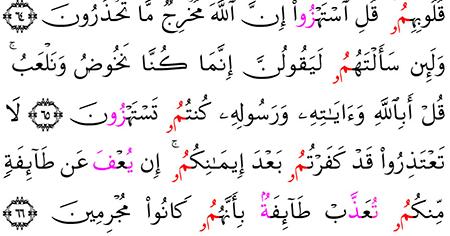 قُلُوبِهِمُۥ قُلِ ٱسْتَهْزُوا۟ إِنَّ ٱللَّهَ مُخْرِجٌ مَّا تَحْذَرُونَ ٦٤
وَلَئِن سَأَلْتَهُمُۥ لَيَقُولُنَّ إِنَّمَا كُنَّا نَخُوضُ وَنَلْعَبُ ۚ
قُلْ أَبِٱللَّهِ وَءَايَٰتِهِۦ وَرَسُولِهِۦ كُنتُمُۥ تَسْتَهْزُونَ ٦٥ لَا
تَعْتَذِرُوا۟ قَدْ كَفَرْتُمُۥ بَعْدَ إِيمَٰنِكُمُۥ ۚ إِن يُعْفَ عَن طَآئِفَةٍ
مِّنكُمُۥ تُعَذَّبْ طَآئِفَةٌۢ بِأَنَّهُمُۥ كَانُوا۟ مُجْرِمِينَ ٦٦